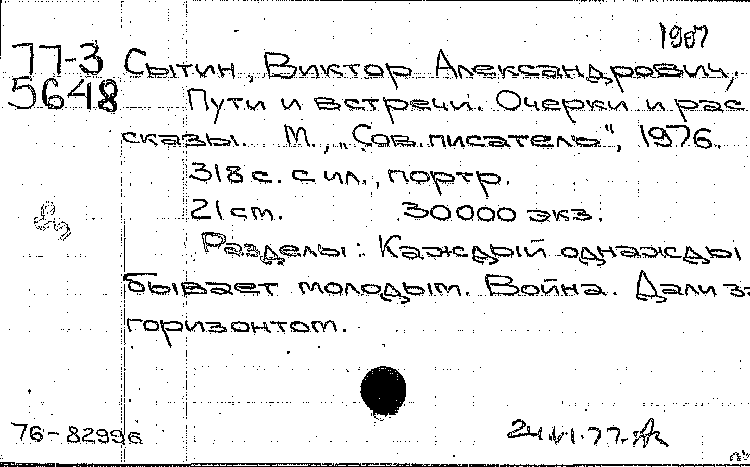 1907
77-3 Сытин, Виктор Александрович,
5648 Пути и встречи. Очерки и рас
сказы. М., „Сов. писатель", 1976.
318 с. с ил., портр.
21 cm. 30000 экз.
Разделы: Каждый однажды
бывает молодым. Война. Дали за
горизонтом.
76-82996 24.VI.77.